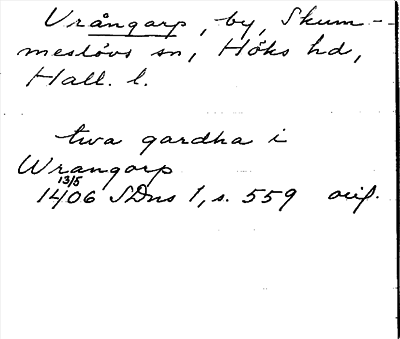 Vrångarp, by, Skum-
meslövs sn, Höks hd,
Hall. l.
twa gardha i
Wrangorp
13/5
1406 SDns 1, s. 559 orig.